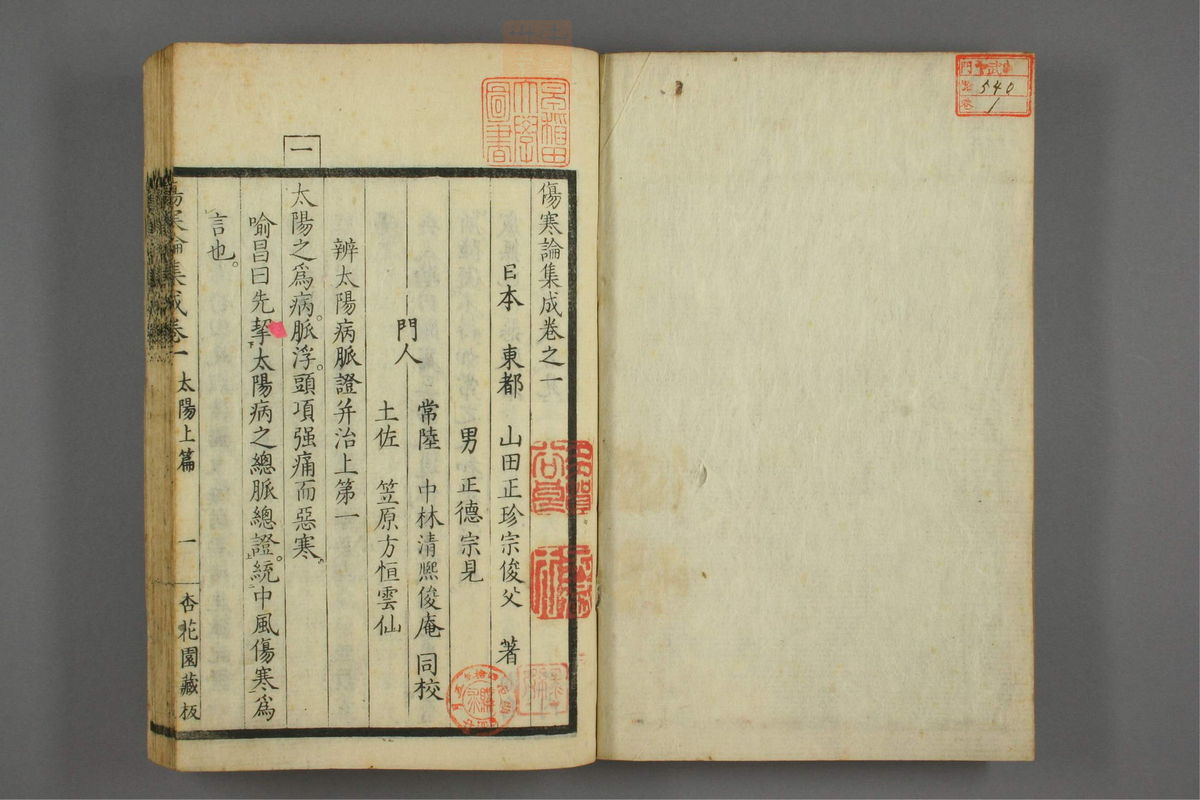 門 武
540
1
早稲田
大學
圖書
傷寒論集成卷之一
日本 東都 山田正珍宗俊父 著
男 正德宗見
門人 常陸 中林清熙俊庵 同校
土佐 笠原方恒雲仙
辨太陽病脈證并治上第一
一
太陽之爲病。脈浮。頭項强痛而惡寒。
喻昌曰先挈太陽病之總脈總證。統中風傷寒爲
言也。
傷寒論集成卷一 太陽上篇 一 杏花園藏板